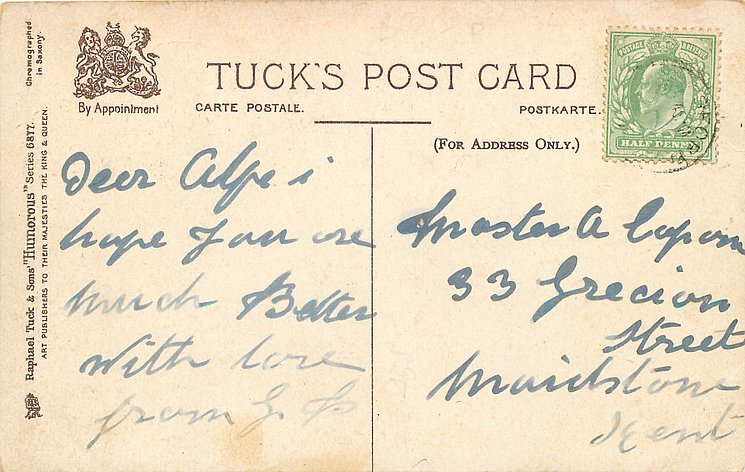 Chromographed
in Saxony
By Appointment
TUCK'S POST CARD
CARTE POSTALE.
POSTKARTE.
(FOR ADDRESS ONLY.)
POSTAGE & REVENUE
HALF PENNY
Raphael Tuck & Sons' "Humorous" Series 6877.
ART PUBLISHERS TO THEIR MAJESTIES THE KING & QUEEN.
Dear Alfe i
hope you are
much Better
With love
from G
Master A Capon
33 Grecian
Street
Maidstone
Kent